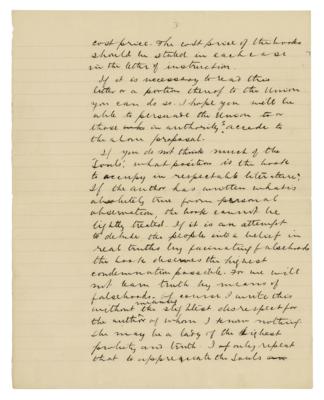 3
cost price. The cost price of the books
should be stated in each case
in the letter of instruction.
If it is necessary to read this
letter or a portion thereof to the Union
you can do so. I hope you will be
able to persuade the Union or
those in authority to accede to
the above proposal.
If you do not think much of the
Souls, what position is the book
to occupy in respectable literature?
If the author has written what is
absolutely true from personal
observation, the book cannot be
lightly treated. If it is an attempt
to delude the people into a belief in
real truths by fascinating falsehoods
the book deserves the highest
condemnation possible. For we will
not learn truth by means of
falsehoods. Of course I write this
without meaning the slightest disrespect for
the author of whom I know nothing.
She may be a lady of the highest
probity and truth. I only repeat
that to appreciate the Souls